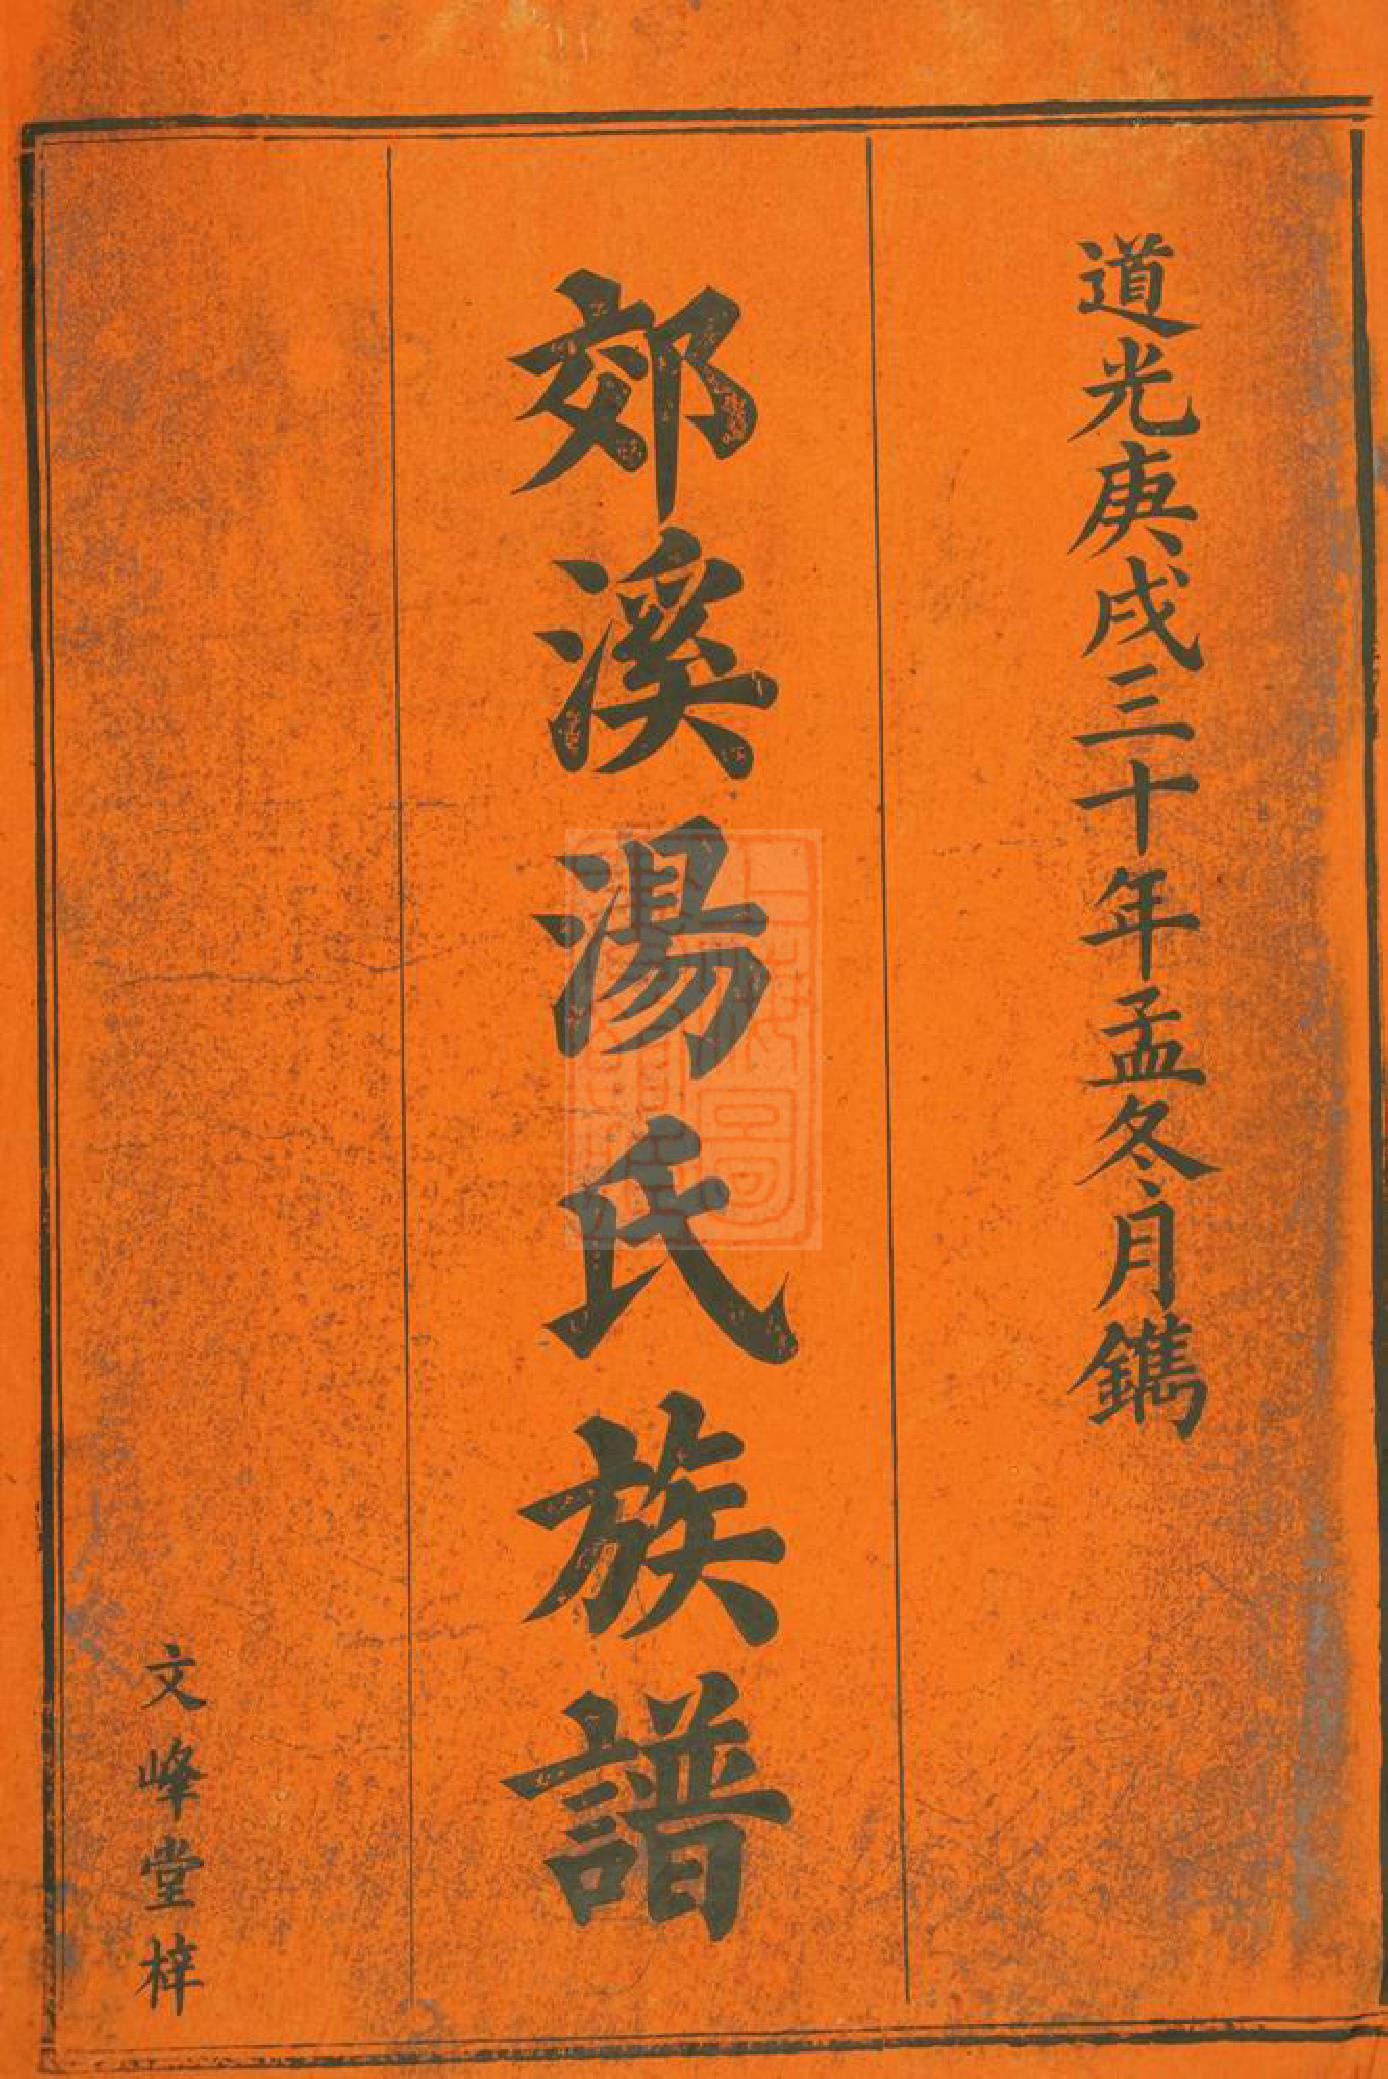 道光庚戌三十年孟冬月鐫
郊溪湯氏族譜
文峰堂梓